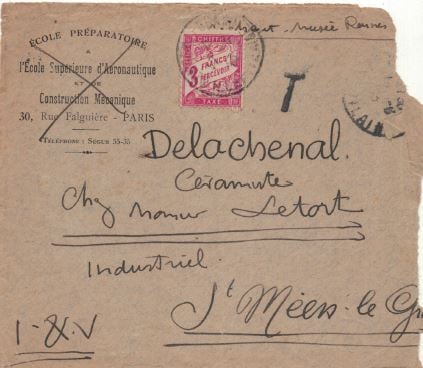 ÉCOLE PRÉPARATOIRE
A
l'École Supérieure d'Aéronautique
ET DE
Construction Mécanique
30, Rue Falguière - PARIS
TÉLÉPHONE : SÉGUR 55-35
CHIFFRE
3 FRANCS A
PERCEVOIR
TAXE
T
Musée Rennes
Delachenal.
Céramiste
Chez Monsieur Letort
Industriel.
St Méen-le G
I-&.V